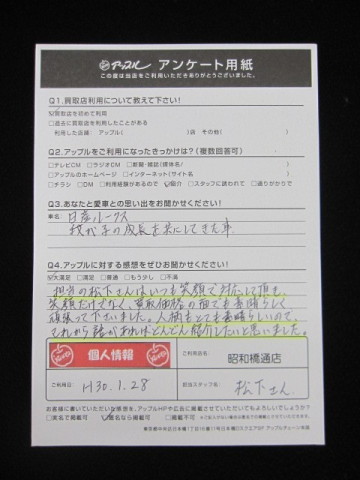 アップル アンケート用紙
この度は当店をご利用いただきありがとうございました。
Q1.買取店利用について教えて下さい!
☑買取店を初めて利用
□過去に買取店を利用したことがある
利用した店舗： アップル( )店 その他( )
Q2.アップルをご利用になったきっかけは?(複数回答可)
□テレビCM □ラジオCM □新聞・雑誌(媒体名/ )
□アップルのホームページ □インターネット(サイト名 )
□チラシ □DM □利用経験があるので ☑紹介 □スタッフに誘われて □通りがかりで
Q3.あなたと愛車との思い出をお聞かせください!
車名 日産ルークス
我が子の成長を共にしてきた車
Q4.アップルに対する感想をぜひお聞かせください!
☑大満足 □満足 □普通 □もう少し □不満
担当の松下さんはいつも笑顔で対応して頂き、
笑顔だけでなく、買取価格の面でも素晴らしく
頑張って下さいました。人柄もとても素晴らしいので、
これから話があればどんどん紹介したいと思いました。
個人情報
ご利用店名:
昭和橋通店
ご利用日:
H30.1.28
担当スタッフ名:
松下さん
お客様に書いていただいた感想を、アップルHPや広告に掲載させていただいてもよろしいでしょうか?
□実名で掲載可 ☑匿名なら掲載可 □掲載不可